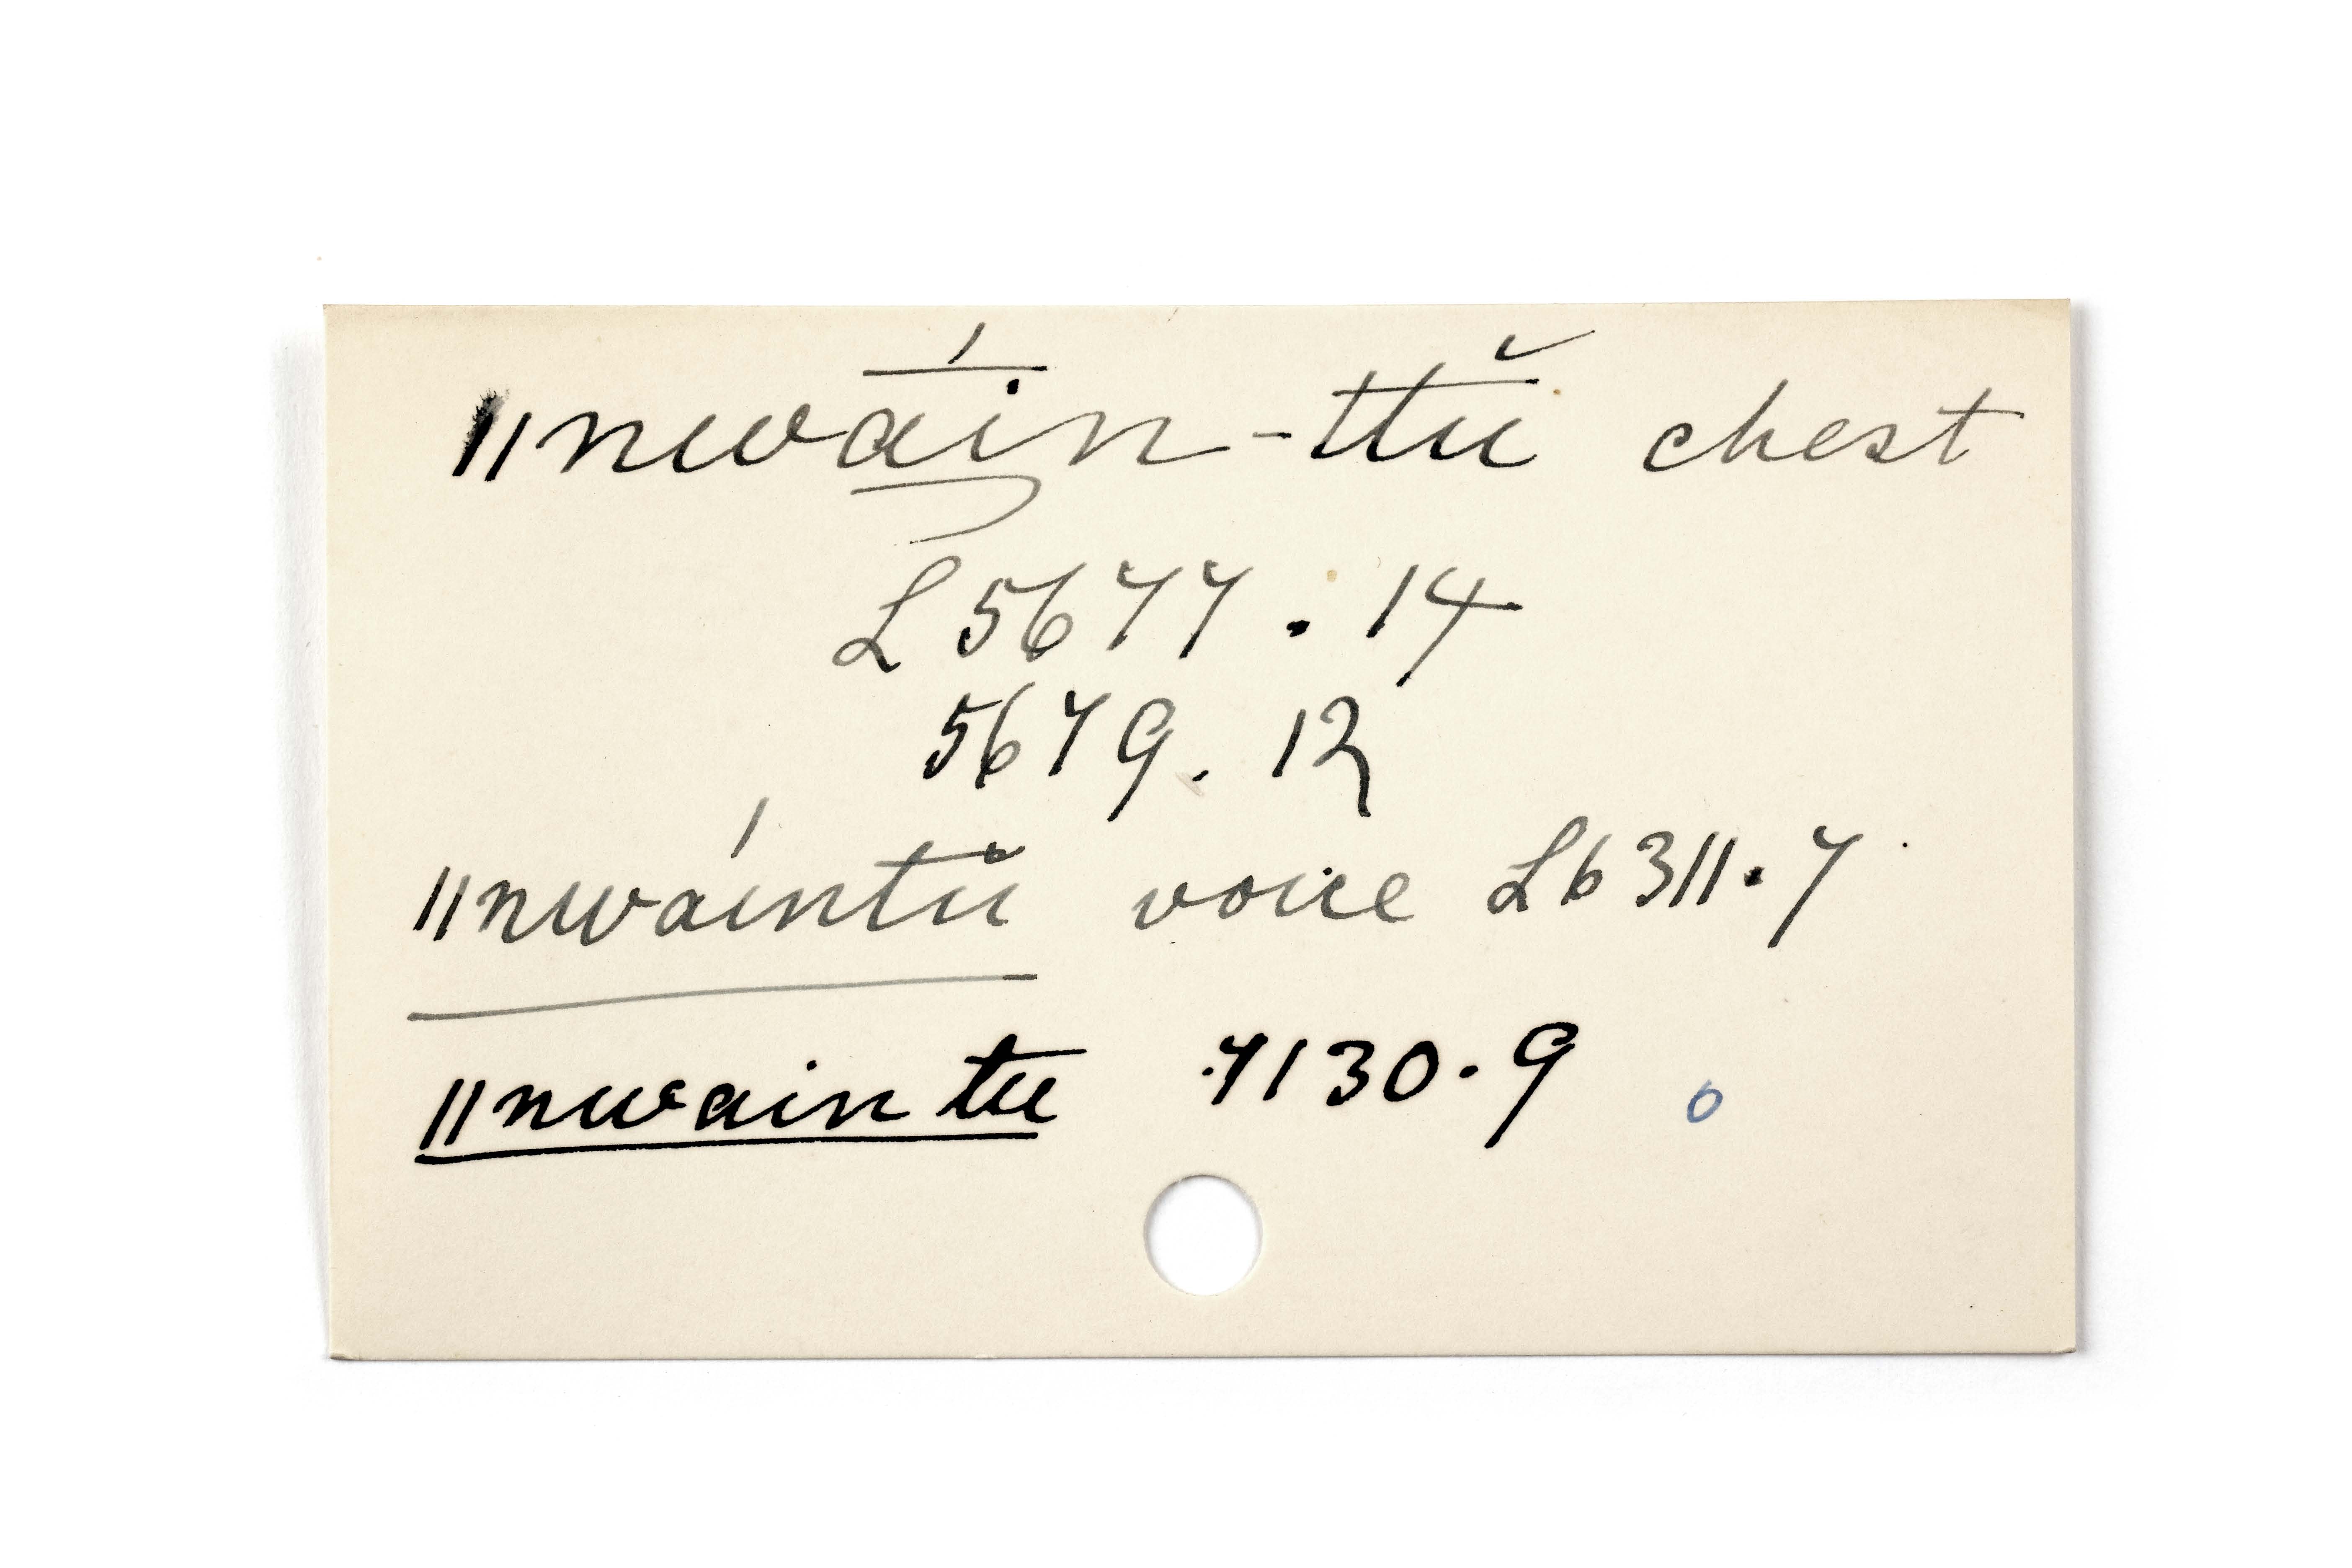 ǁnwā́in-ttŭ chest
L 5677 . 14
5679 . 12
ǁnwáintŭ voice L6311.7
ǁnwaintu 7130.9 o